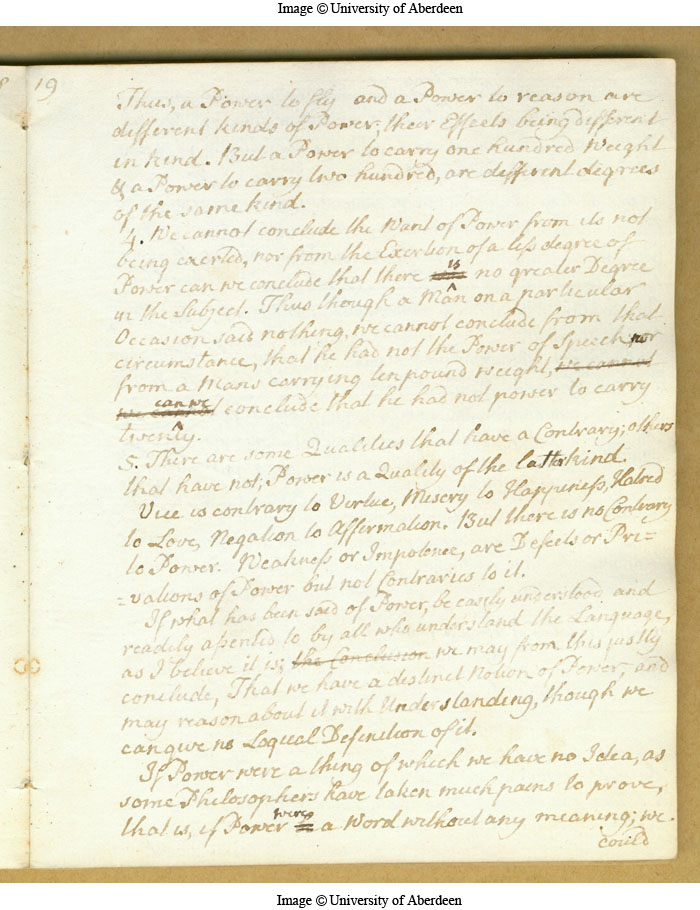 Image © University of Aberdeen
19
Thus, a Power to fly and a Power to reason are
different kinds of Power, their Effects being different
in kind. But a Power to carry one hundred Weight
& a Power to carry two hundred, are different degrees
of the same kind.
4. We cannot conclude the Want of Power from its not
being exerted, nor from the Exertion of a less degree of
Power can we conclude that there is no greater Degree
in the Subject. Thus though a Man on a particular
Occasion said nothing, we cannot conclude from that
circumstance, that he had not the Power of Speech, nor
from a Mans carrying ten pound weight, we cannot
can we conclude that he had not power to carry
twenty.
5. There are some Qualities that have a Contrary; others
that have not; Power is a Quality of the latter kind.
Vice is contrary to Virtue, Misery to Happiness, Hatred
to Love, Negation to Affirmation. But there is no Contrary
to Power. Weakness or Impotence, are Defects or Pri=
=vations of Power but not Contraries to it.
If what has been said of Power, be easily understood, and
readily assented to by all who understand the Language,
as I believe it is; the Conclusion we may from this justly
conclude, That we have a distinct Notion of Power, and
may reason about it with Understanding, though we
can give no Logical Definition of it.
If Power were a thing of which we have no Idea, as
some Philosophers have taken much pains to prove,
that is, if Power were a Word without any meaning; we
could
Image © University of Aberdeen